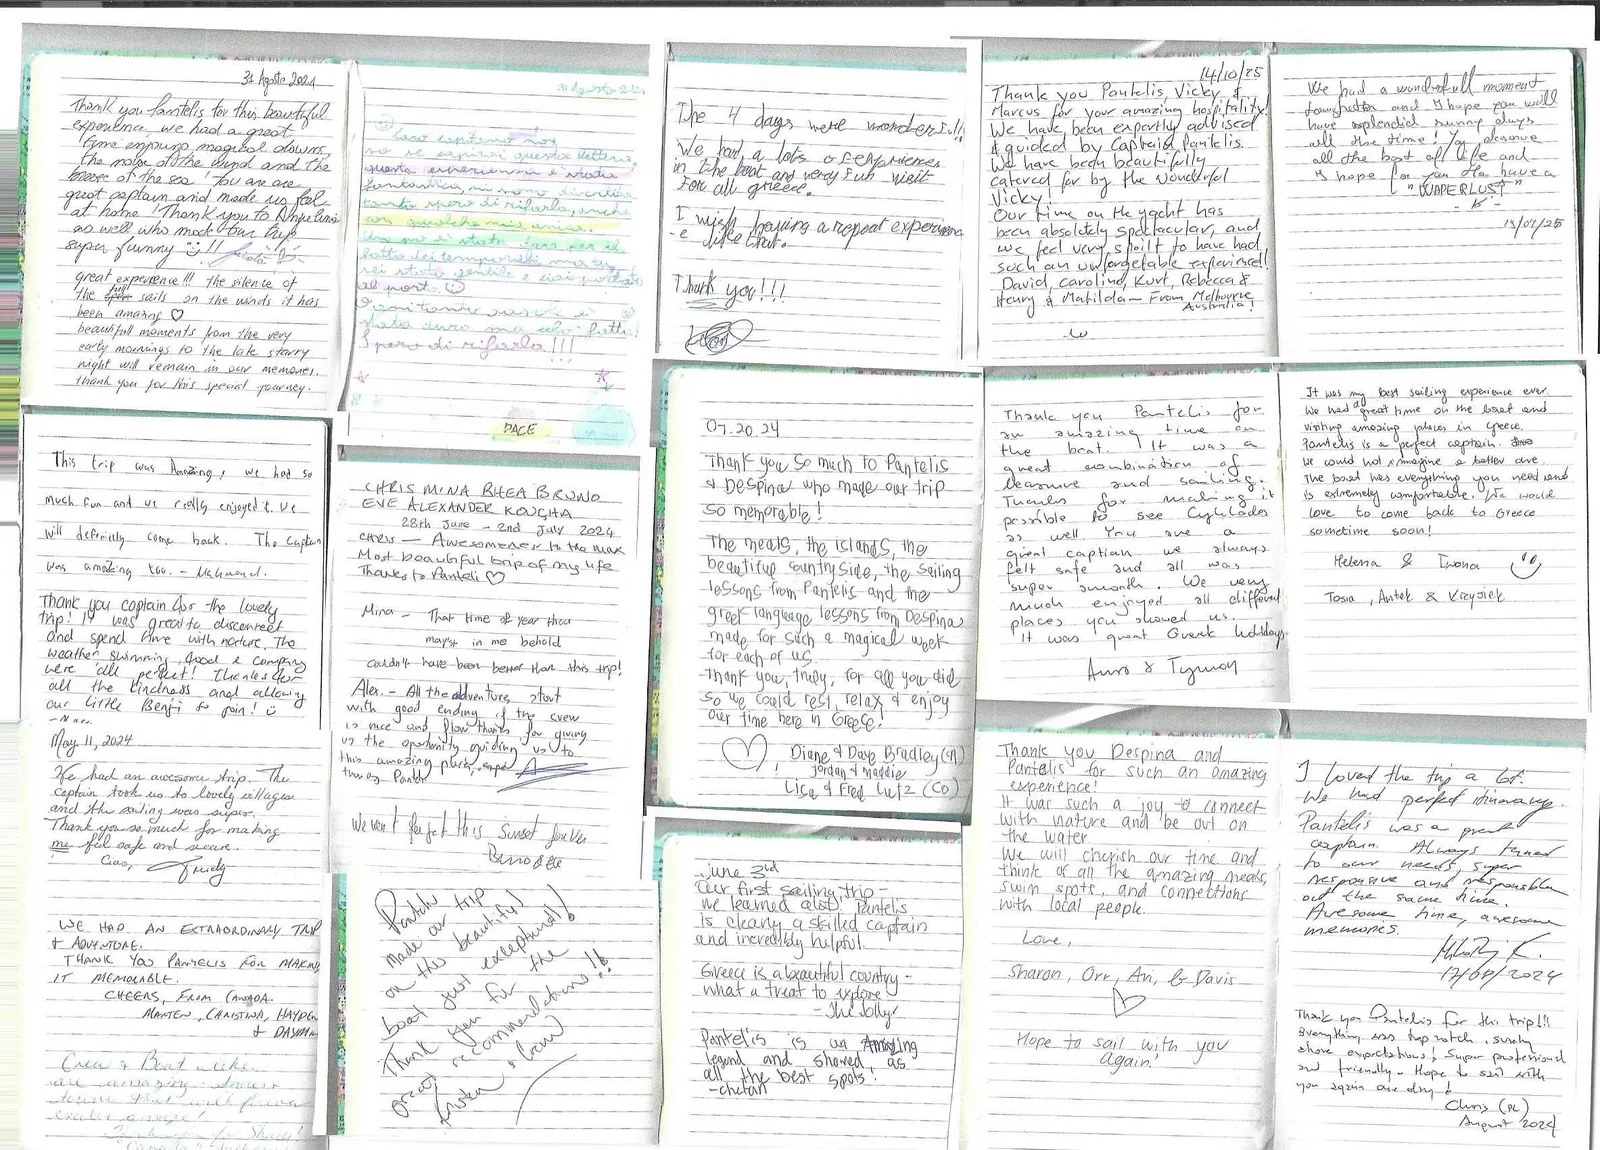 31 Agosto 2024
Thank you Pantelis for this beautiful
experience, we had a great
time enjoying magical downs,
the noise of the wind and the
breeze of the sea! You are are
great captain and made us feel
at home! Thank you to
as well who made our trip
super funny !!
great experience!!! the silence of
the full sails on the winds it has
been amazing ♡
beautifull moments from the very
early mornings to the late starry
night will remain in our memories.
thank you for this special journey.
31 Agosto 2024
Caro capitano
questa lettera,
questa esperienza è stata
fantastica, mi sono divertita
tanto spero di rifarla, anche
con qualche mia amica.
Un po è stata dura per il
fatto dei temporali ma tu
sei stato gentile e ci hai portati
al porto. ☺
stata dura ma celo fatta!
Spero di rifarla!!!
PACE
The 4 days were wonderful!!
We had a lots of experiences
in the boat and very fun visit
for all greece.
I wish having a repeat experien
e like that.
Thank you!!!
14/10/25
Thank you Pantelis, Vicky &
Marcus for your amazing hospitality!
We have been expertly advised
& guided by Captain Pantelis.
We have been beautifully
catered for by the wonderful
Vicky!
Our time on the yacht has
been absolutely spectacular, and
we feel very spoilt to have had
such an unforgetable experience!
David, Caroline, Kurt, Rebecca &
Henry & Matilda — From Melbourne
Australia!
We had a wonderfull moment
together and I hope you will
have splendid sunny days
all the time! You deserve
all the best of life and
I hope for you to have a
"WAPERLUST"
This trip was Amazing, we had so
much fun and we really enjoyed it. We
will definitely come back. The Captain
was amazing too. - Mahmoud.
Thank you captain for the lovely
trip! It was great to disconnect
and spend time with nature. The
weather, swimming, food & company
were all perfect! Thanks for
all the kindness and allowing
our little Benji to join! ☺
May 11, 2024
We had an awesome trip. The
captain took us to lovely villages
and the sailing was super.
Thank you so much for making
me feel safe and secure.
Ciao, Trudy
WE HAD AN EXTRAORDINARY TRIP
& ADVENTURE.
THANK YOU PANTELIS FOR MAKING
IT MEMORABLE.
CHEERS, FROM CANADA.
MARTEN, CHRISTINA, HAYDEN
&
Crew & Boat
are amazing.
that will forever
CHRIS MINA RHEA BRUNO
EVE ALEXANDER KOUGHA
28th June - 2nd July 2024
CHRIS — Awesomeness to the max
Most beautiful trip of my life
Thanks to Panteli ♡
Mina - That time of year thou
mayst in me behold
couldn't have been better than this trip!
Alex. - All the adventures start
with good ending if the crew
is nice and flow thanks for giving
us the oportunity guiding us to
this amazing place,
We won't forget this Sunset for ever
Pantelis
made our trip
on this beautiful
boat just exceptional!
Thank you for the
great recommendations!!
07.20.24
Thank you so much to Pantelis
& Despina who made our trip
so memorable!
The meals, the islands, the
beautiful countryside, the sailing
lessons from Pantelis and the
greek language lessons from Despina
made for such a magical week
for each of us.
Thank you, truly, for all you did
so we could rest, relax & enjoy
our time here in Greece!
♡, Diane & Dave Bradley (CA)
Jordan & Maddie
Lisa & Fred Lutz (CO)
June 3rd
Our first sailing trip -
we learned alot! Pantelis
is clearly a skilled captain
and incredibly helpful.
Greece is a beautiful country -
what a treat to explore
- The Jollys
Pantelis is an Amazing
legend and showed us
all the best spots!
- chetan
Thank you Pantelis for
an amazing time on
the boat. It was a
great combination of
leasure and sailing.
Thanks for making it
possible to see Cyklades
as well. You are a
great captian we always
felt safe and all was
super smooth. We very
much enjoyed all different
places you showed us.
It was great Greek holidays
It was my best sailing experience ever.
We had a great time on the boat and
visiting amazing places in Greece.
Pantelis is a perfect captain.
We could not imagine a better one.
The boat has everything you need and
is extremely comfortable. We would
love to come back to Greece
sometime soon!
Helena & Iwona
Tosia, Antek & Krzysiek
Thank you Despina and
Pantelis for such an amazing
experience!
It was such a joy to connect
with nature and be out on
the water
We will cherish our time and
think of all the amazing meals,
swim spots, and connections
with local people.
Love,
Sharon, Orr, Ari, & Davis
♡
Hope to sail with you
again!
I loved the trip a lot.
We had perfect
Pantelis was a great
captain. Always tuned
to our needs, super
responsive and responsible
at the same time.
Awesome time, awesome
memories.
17/08/2024
Thank you Pantelis for this trip!!!
Everything was top notch, surely
above expectations! Super professional
and friendly. Hope to sail with
you again one day!
Chris (PL)
August 2024